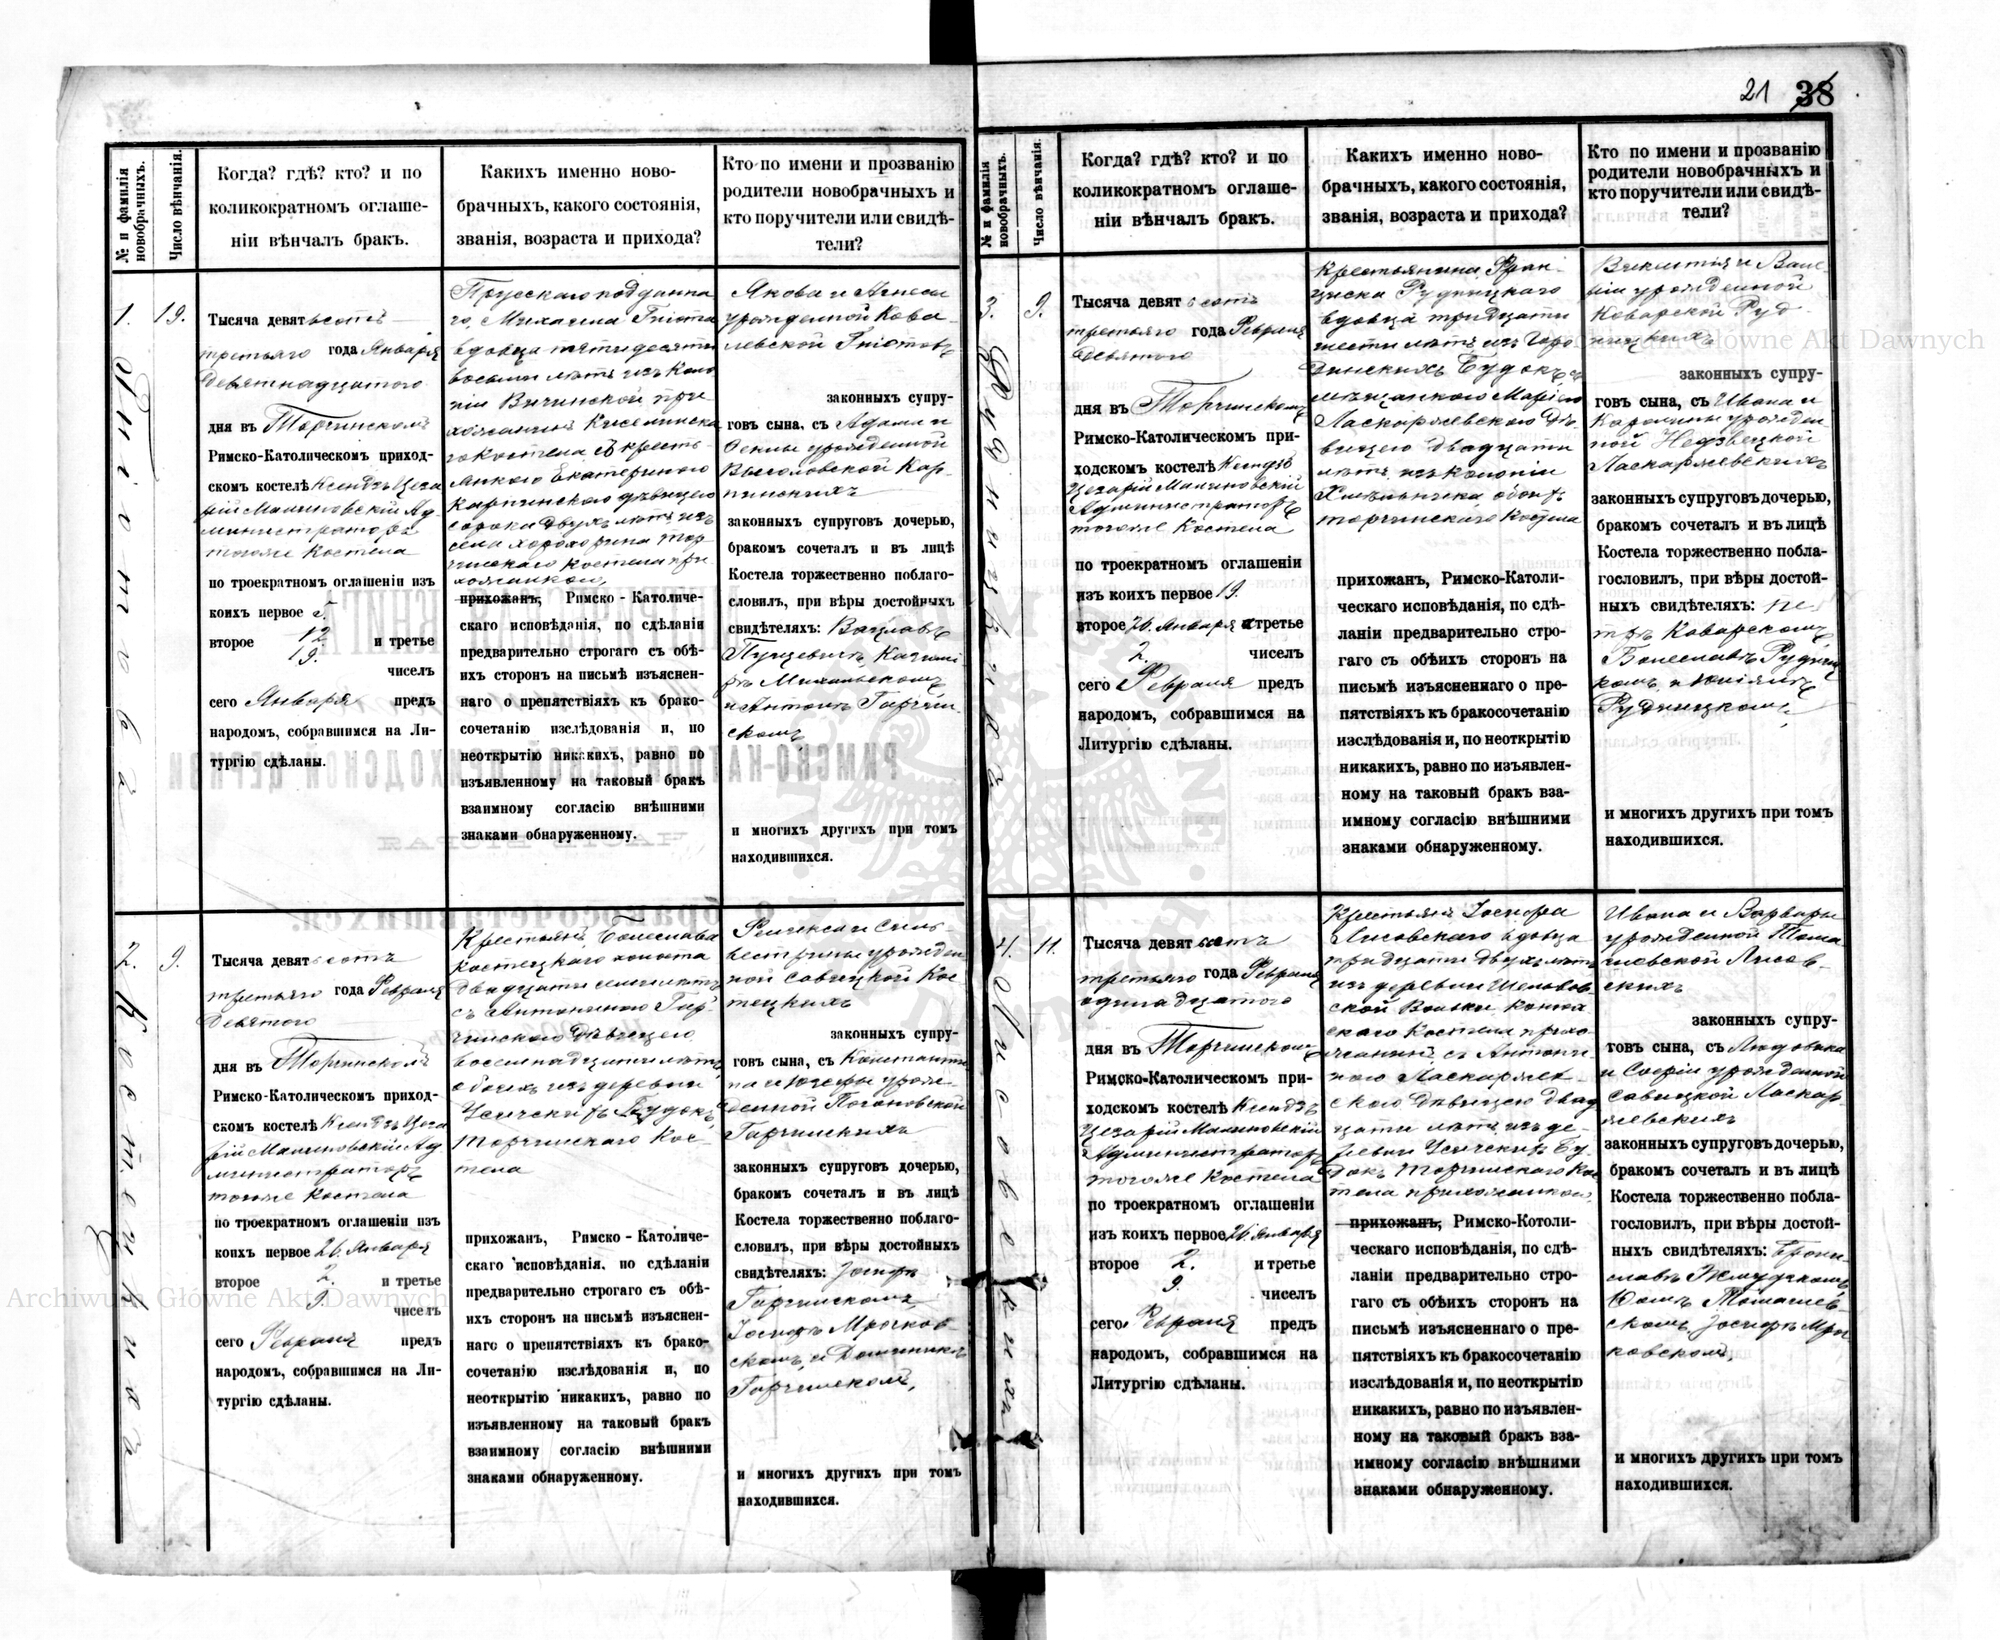 21 38
№ и фамилія новобрачныхъ.
Число вѣнчанія.
Когда? гдѣ? кто? и по
коликократномъ оглаше-
ніи вѣнчалъ бракъ.
Какихъ именно ново-
брачныхъ, какого состоянія,
званія, возраста и прихода?
Кто по имени и прозванію
родители новобрачныхъ и
кто поручители или свидѣ-
тели?
1.
19.
Тысяча девятьсотъ
третьяго года Января
Девятнадцатого
дня въ Торчинскомъ
Римско-Католическомъ приход-
скомъ костелѣ Ксендзъ Цеза
рій Малиновскій Ад
министраторъ
тогоже Костела
по троекратномъ оглашеніи изъ
коихъ первое 5.
второе 12. и третье
19. чиселъ
сего Января предъ
народомъ, собравшимся на Ли-
тургію сдѣланы.
Прусскаго поддданна
го, Михаила Гніота
вдовца пятидесяти
восьми лѣтъ изъ Коло
ніи
Екатериною
Карпинскою дѣвицею
сорока двухъ лѣтъ изъ
села Хорохорина Тор
чинскаго костела при
хожанкою,
прихожанъ, Римско-Католиче-
скаго исповѣданія, по сдѣланіи
предварительно строгаго съ обѣ-
ихъ сторонъ на письмѣ изъяснен-
наго о препятствіяхъ къ брако-
сочетанію изслѣдованія и, по
неоткрытію никакихъ, равно по
изъявленному на таковый бракъ
взаимному согласію внѣшними
знаками обнаруженному.
Якова и Агнесы
урожденной Кова
левской Гніотовъ
законныхъ супру-
говъ сына, съ Адама и
урожденной
Кар
пинскихъ
законныхъ супруговъ дочерью,
бракомъ сочеталъ и въ лицѣ
Костела торжественно поблаго-
словилъ, при вѣры достойныхъ
свидѣтеляхъ: Вацлавъ
Пунцевичъ Казими
ръ
и Антонъ Гарчин
скомъ
и многихъ другихъ при томъ
находившихся.
2. Костецкихъ
9.
Тысяча девятьсотъ
третьяго года Февраля
Девятого
дня въ Торчинскомъ
Римско-Католическомъ приход-
скомъ костелѣ Ксендзъ Цеза
рій Малиновскій Ад
министраторъ
тогоже Костела
по троекратномъ оглашеніи изъ
коихъ первое 26. Января
второе 2. и третье
9. чиселъ
сего Февраля предъ
народомъ, собравшимся на Ли-
тургію сдѣланы.
Крестьянъ Болеслава
Костецкаго холоста
двадцати семи лѣтъ
съ Антониною Гар
чинскою Дѣвицею
восемнадцати лѣтъ
обоихъ изъ деревни
Усическихъ Будокъ
Торчинскаго Кос
тела
прихожан, Римско-Католиче-
скаго исповѣданія, по сдѣланіи
предварительно строгаго съ обѣ-
ихъ сторонъ на письмѣ изъяснен-
наго о препятствіяхъ къ брако-
сочетанію изслѣдованія и, по
неоткрытію никакихъ, равно по
изъявленному на таковый бракъ
взаимному согласію внѣшними
знаками обнаруженному.
и Силь
вестрины урожден
ной Савицкой Кос
тецкихъ
законныхъ супру-
говъ сына, съ Константи
на и Юзефы урож
денной
Гарчинскихъ
законныхъ супруговъ дочерью,
бракомъ сочеталъ и въ лицѣ
Костела торжественно поблаго-
словилъ, при вѣры достойныхъ
свидѣтеляхъ: Іосифъ
Гарчинскомъ,
Іосифъ Мрочков
скомъ, и Доминикъ
Гарчинскомъ,
и многихъ другихъ при томъ
находившихся.
№ и фамилія новобрачныхъ.
Число вѣнчанія.
Когда? гдѣ? кто? и по
коликократномъ оглаше-
ніи вѣнчалъ бракъ.
Какихъ именно ново-
брачныхъ, какого состоянія,
званія, возраста и прихода?
Кто по имени и прозванію
родители новобрачныхъ и
кто поручители или свидѣ-
тели?
3.
9.
Тысяча девятьсотъ
третьяго года Февраля
Девятого
дня въ Торчинскомъ
Римско-Католическомъ при-
ходскомъ костелѣ Ксендзъ
Цезарій Малиновскій
Администраторъ
тогоже Костела
по троекратномъ оглашеніи
изъ коихъ первое 19.
второе 26. Января и третье
2. чиселъ
сего Февраля предъ
народомъ, собравшимся на
Литургію сдѣланы.
Крестьянина Фран
циска Рудницкаго
вдовца тридцати
шести лѣтъ изъ Горо
динскихъ Будокъ, съ
мѣщанкою Маріею
Ласкаржевскою Дѣ
вицею двадцати
лѣтъ изъ колоніи
Торчинскаго Костела
прихожан, Римско-Католи-
ческаго исповѣданія, по сдѣ-
ланіи предварительно стро-
гаго съ обѣихъ сторонъ на
письмѣ изъясненнаго о пре-
пятствіяхъ къ бракосочетанію
изслѣдованія и, по неоткрытію
никакихъ, равно по изъявлен-
ному на таковый бракъ вза-
имному согласію внѣшними
знаками обнаруженному.
Викентія и Вале
ріи урожденной
Коварской Руд
ницкихъ
законныхъ супру-
говъ сына, съ Ивана и
Каролины урожден
ной Недзвецкой
Ласкаржевскихъ
законныхъ супруговъ дочерью,
бракомъ сочеталъ и въ лицѣ
Костела торжественно побла-
гословилъ, при вѣры достой-
ныхъ свидѣтеляхъ: Пе
тръ Коварскомъ
Болеславъ Рудниц
комъ, и
Рудницкомъ,
и многихъ другихъ при томъ
находившихся.
4. Лисовскихъ
11.
Тысяча девятьсотъ
третьяго года Февраля
одинадцатого
дня въ Торчинскомъ
Римско-Католическомъ при-
ходскомъ костелѣ Ксендзъ
Цезарій Малиновскій
Администраторъ
тогоже Костела
по троекратномъ оглашеніи
изъ коихъ первое 26. Января
второе 2. и третье
9. чиселъ
сего Февраля предъ
народомъ, собравшимся на
Литургію сдѣланы.
Крестьянъ Іосифа
Лисовскаго вдовца
тридцати двухъ лѣтъ
изъ деревни Шельвов
ской Вольки
скаго Костела прихо
жанинъ, съ Антони
ною Ласкаржев
скою Дѣвицею двад
цати лѣтъ изъ де
ревни Усическихъ Бу
докъ Торчинскаго Кос
тела прихожанкою,
прихожанъ, Римско-Котоли-
ческаго исповѣданія, по сдѣ-
ланіи предварительно стро-
гаго съ обѣихъ сторонъ на
письмѣ изъясненнаго о пре-
пятствіяхъ къ бракосочетанію
изслѣдованія и, по неоткрытію
никакихъ, равно по изъявлен-
ному на таковый бракъ вза-
имному согласію внѣшними
знаками обнаруженному.
Ивана и Варвары
урожденной Тома
шевской Лисов
скихъ
законныхъ супру-
говъ сына, съ Людовика
и Софіи урожденной
Савицкой Ласкар
жевскихъ
законныхъ супруговъ дочерью,
бракомъ сочеталъ и въ лицѣ
Костела торжественно побла-
гословилъ, при вѣры достой-
ныхъ свидѣтеляхъ: Брони
славъ Жмудзкомъ,
Томашев
скомъ, Іосифъ Мроч
ковскомъ,
и многихъ другихъ при томъ
находившихся.
Archiwum Główne Akt Dawnych
Archiwum Główne Akt Dawnych